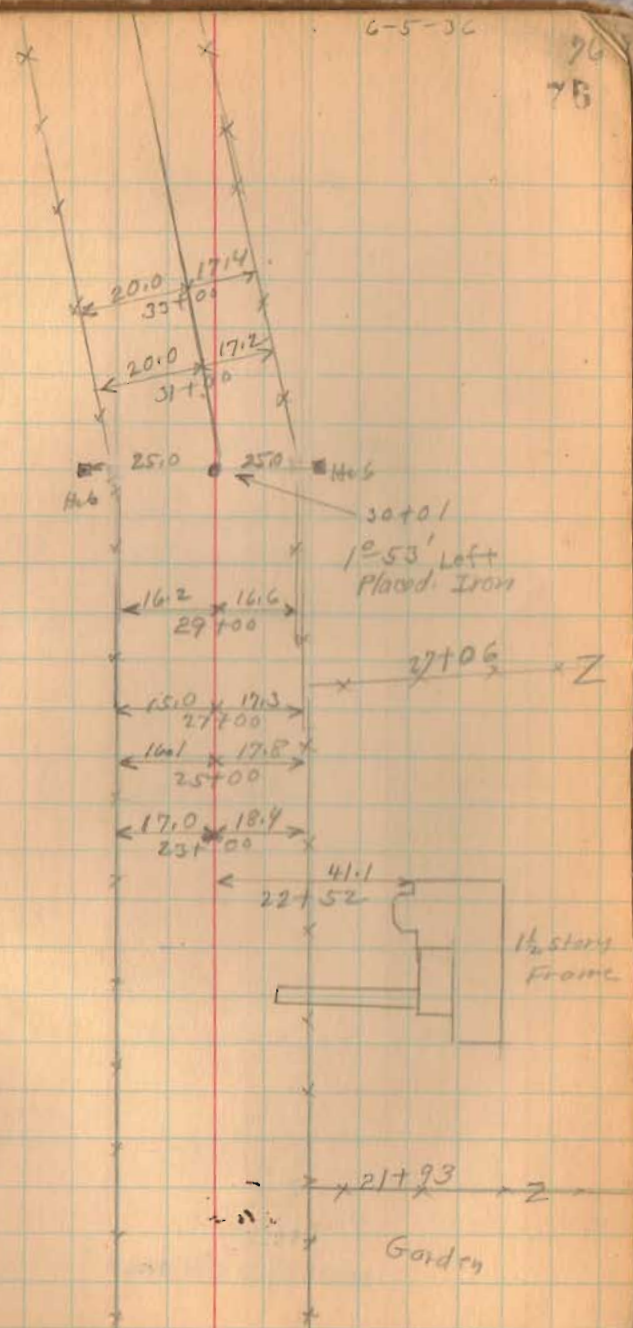 6-5-36
76
75
20.0 17.4
33+00
20.0 17.2
31+00
25.0 25.0
Hub Hub
30+01
1°-53' Left
Placed Iron
16.2 16.6
29+00
27+06 Z
15.0 17.3
27+00
16.1 17.8
25+00
17.0 18.4
23+00
41.1
22+52
1½ story
Frame
21+93 Z
Garden